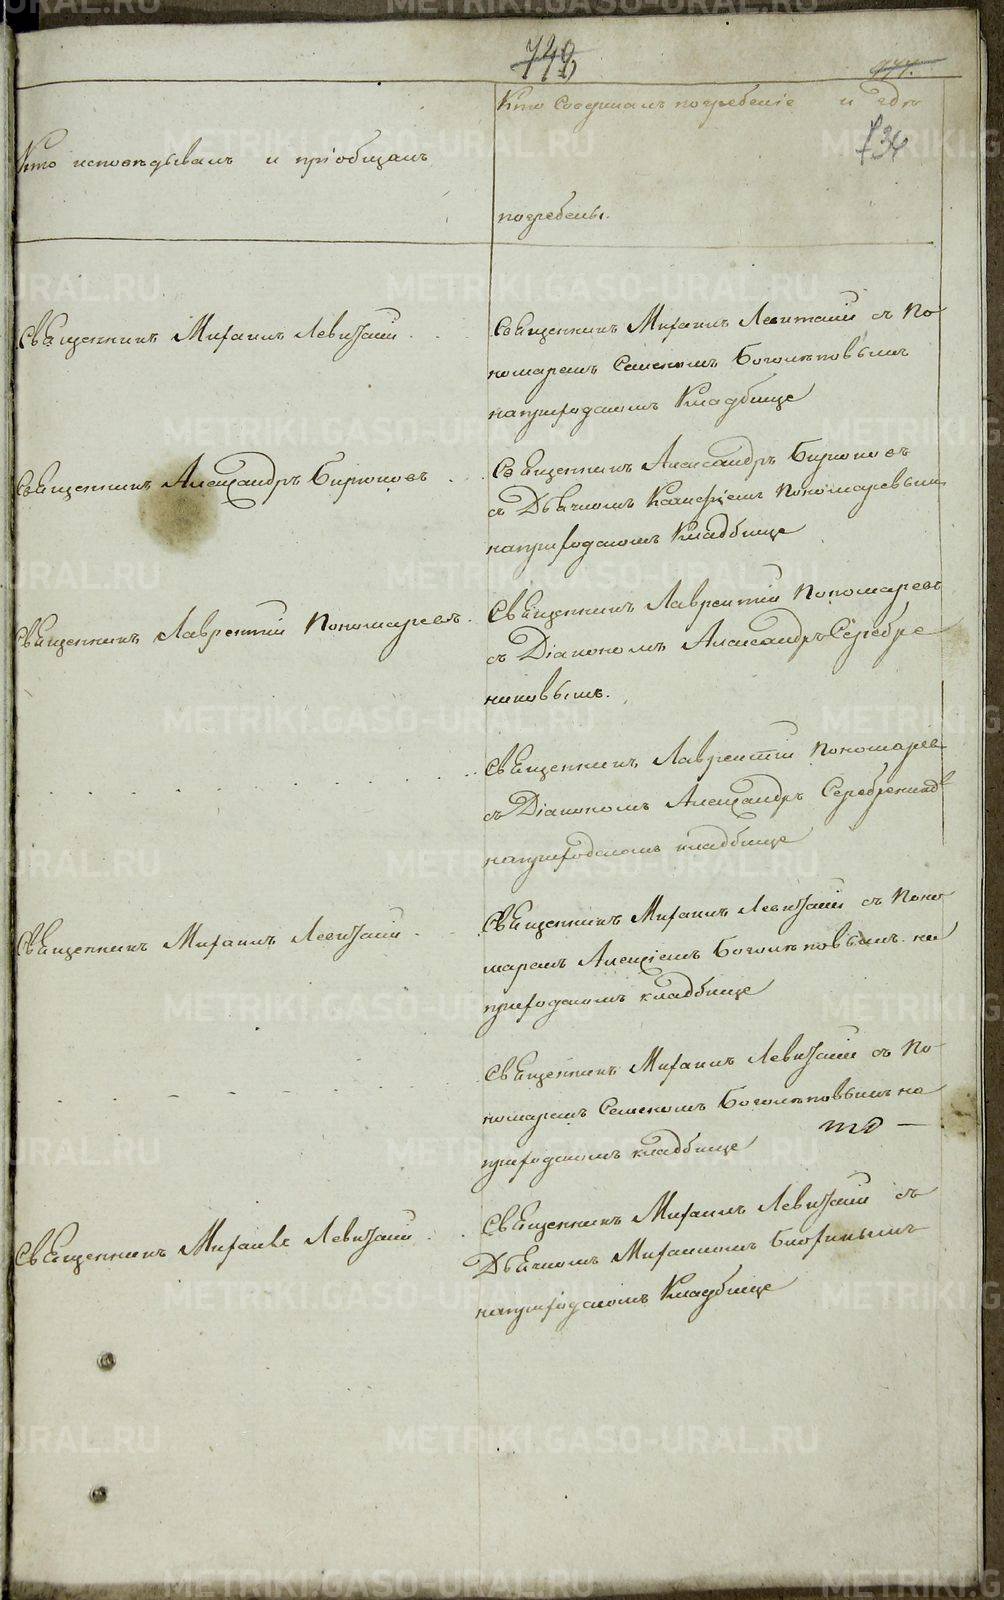 749
777.
734
Кто исповѣдывалъ и пріобщалъ
Кто совершалъ погребеніе и гдѣ
погребены.
Священникъ Михаилъ Левитскій
Священникъ Михаилъ Левитскій съ По
номаремъ Семеномъ Боголѣповымъ
на приходскомъ Кладбище
Священникъ Александръ Бирюковъ
Священникъ Александръ Бирюковъ
съ Дьячкомъ Пономаревымъ
на приходскомъ Кладбище
Священникъ Лаврентій Пономаревъ
Священникъ Лаврентій Пономаревъ
съ Діакономъ Александръ Серебре
никовымъ.
Священникъ Лаврентій Пономаревъ
съ Діакономъ Александръ Серебрениковъ
на приходскомъ кладбище
Священникъ Михаилъ Левитскій
Священникъ Михаилъ Левитскій съ Поно
маремъ Алексіемъ Боголѣповымъ на
приходскомъ кладбище
Священникъ Михаилъ Левитскій съ По
номаремъ Семеномъ Боголѣповымъ на
приходскомъ кладбище
Священникъ Михаилъ Левитскій
Священникъ Михаилъ Левитскій съ
Дьячкомъ Михаиломъ
на приходскомъ Кладбище
METRIKI.GASO-URAL.RU